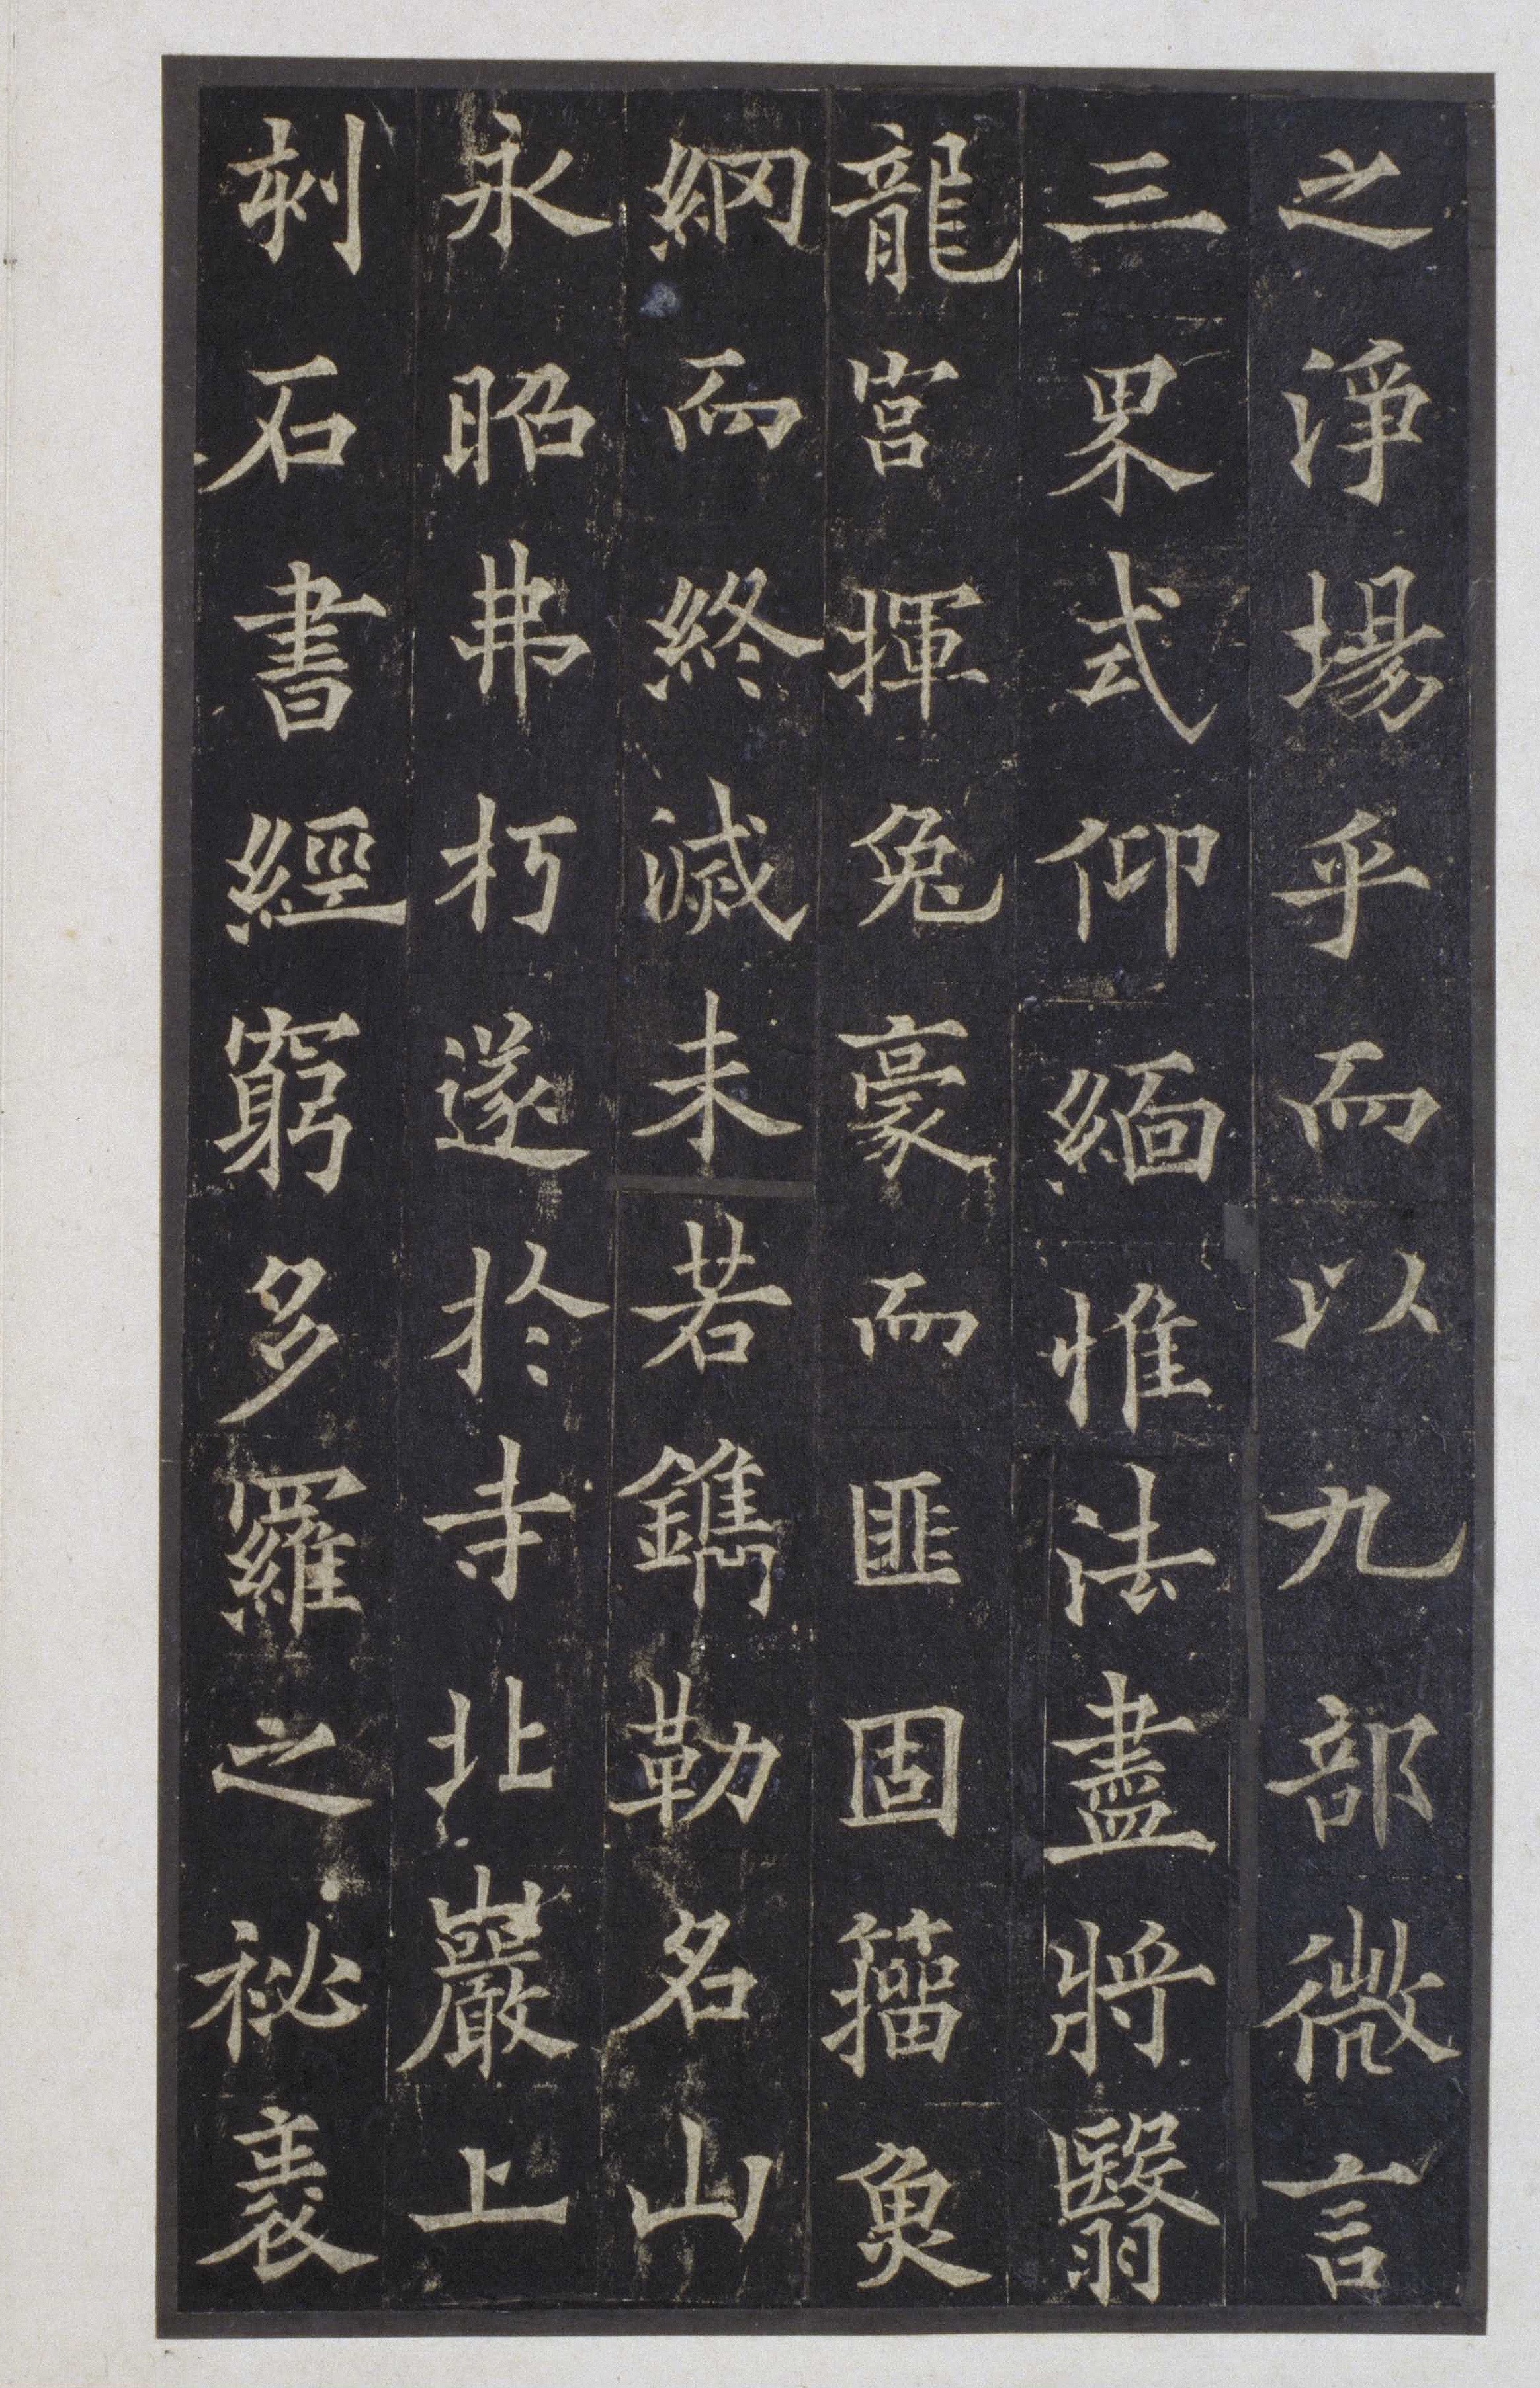 之淨場乎而以九部微言
三界式仰緬惟法盡將翳
龍宮揮兔豪而匪固籀魚
網而終滅未若鐫勒名山
永昭弗朽遂於寺北巖上
刺石書經窮多羅之祕袠